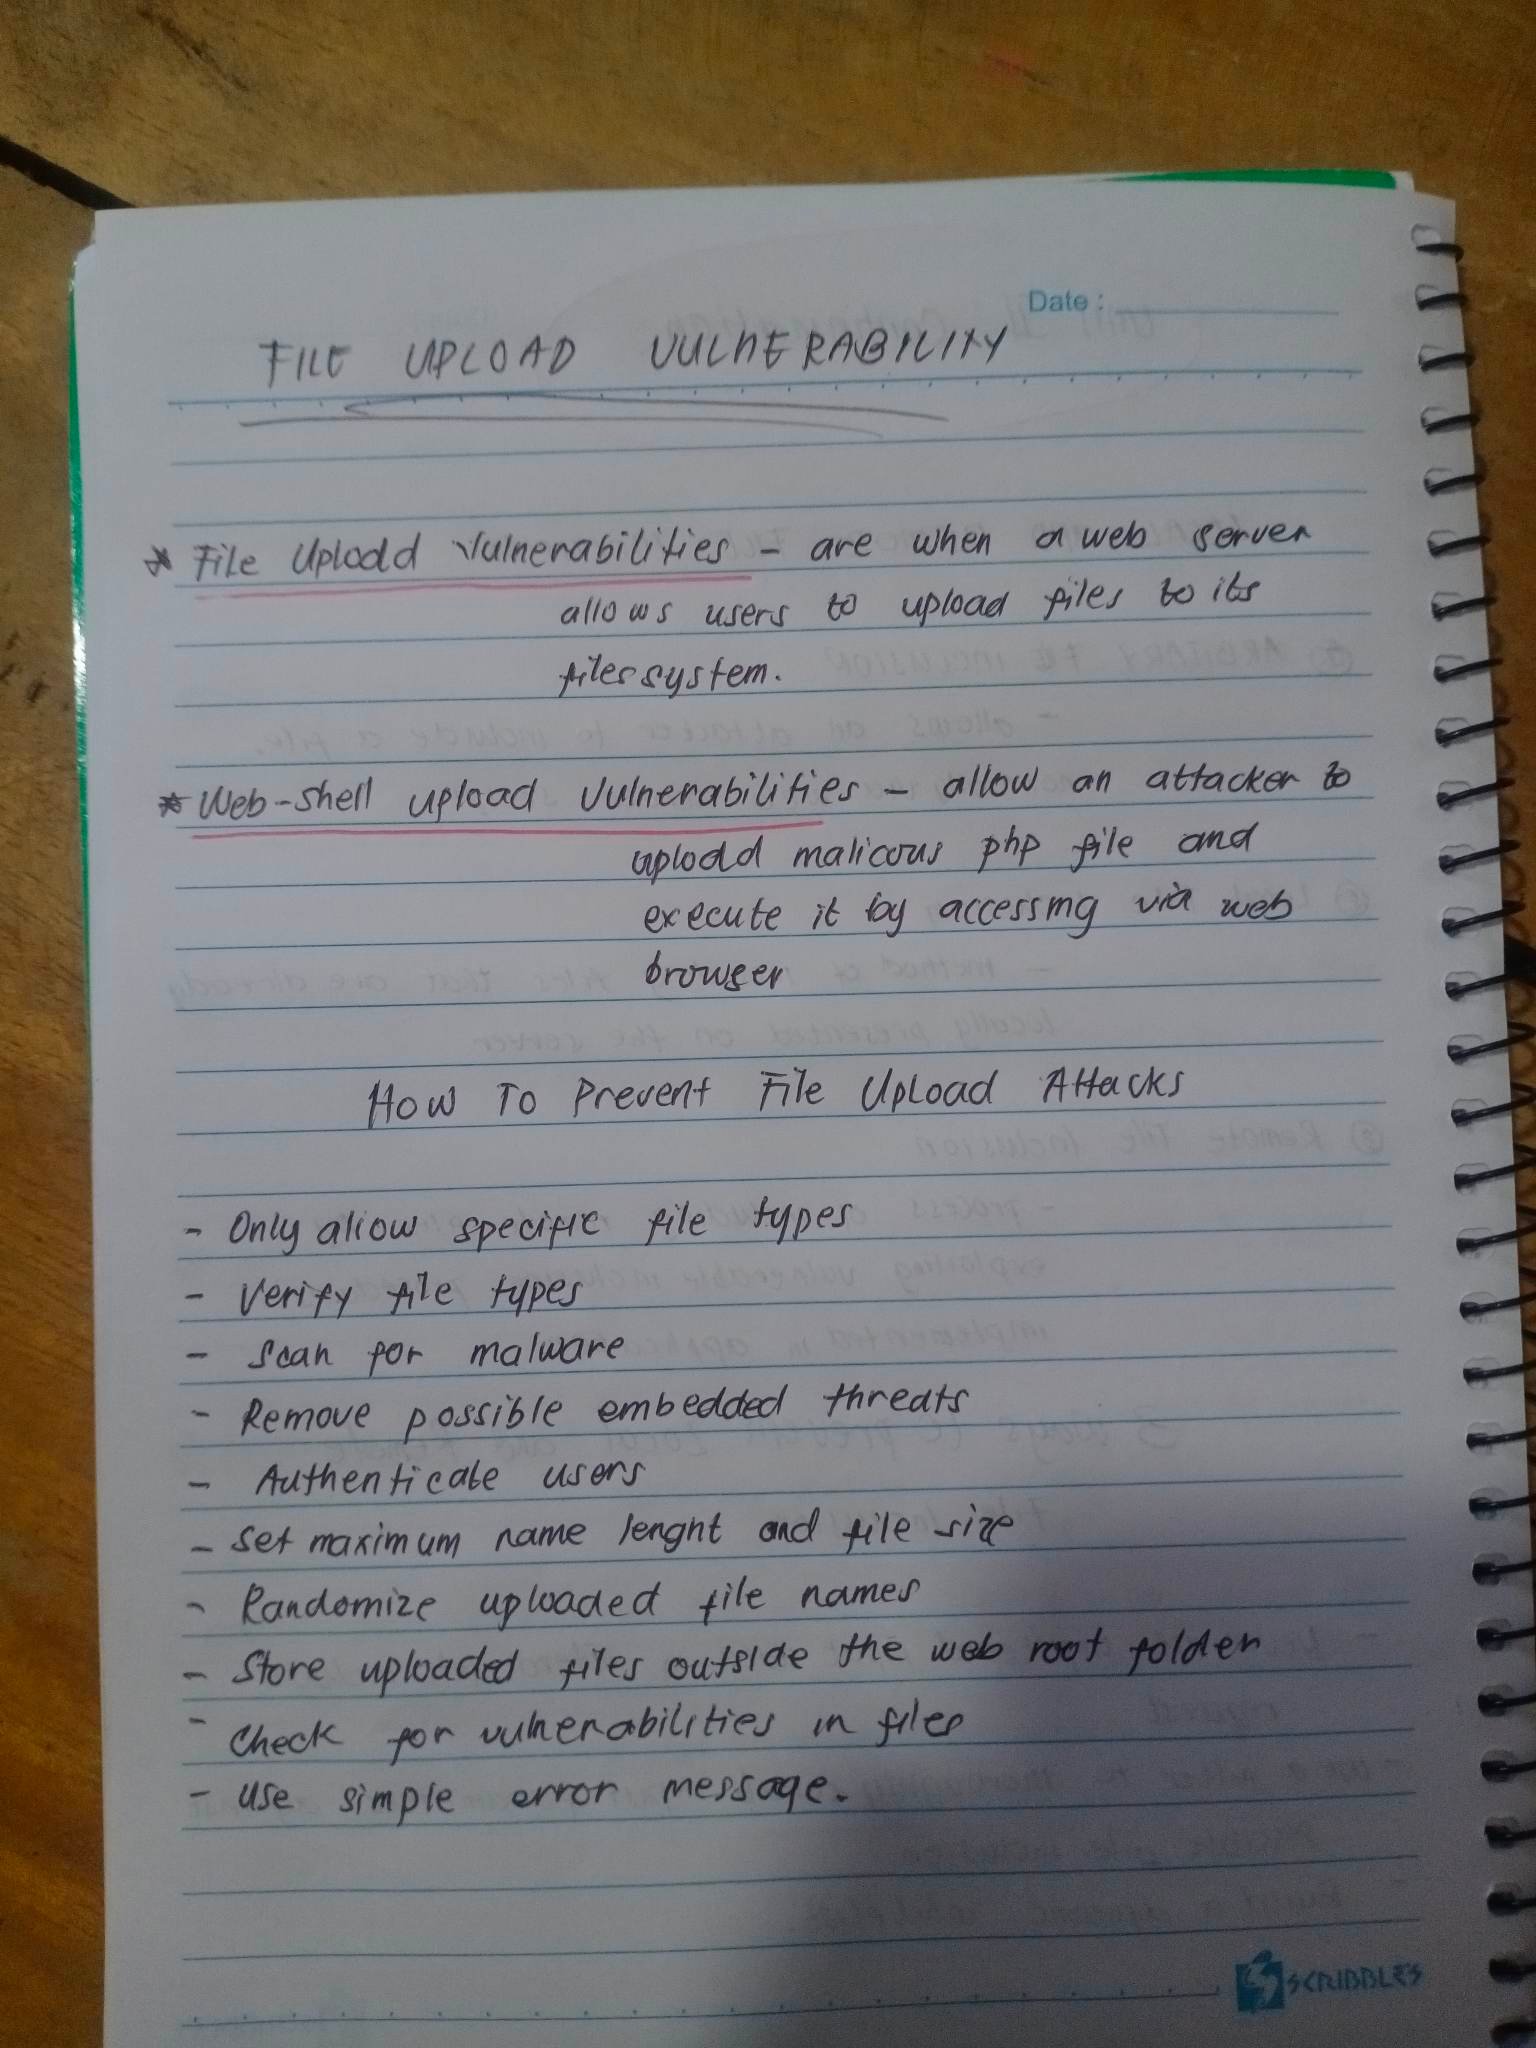 Date :
FILE UPLOAD VULNERABILITY
* File Upload Vulnerabilities - are when a web server
allows users to upload files to its
filessystem.
* Web-shell upload Vulnerabilities - allow an attacker to
upload malicous php file and
execute it by accessing via web
browser
How To Prevent File Upload Attacks
- Only allow specific file types
- Verify file types
- Scan for malware
- Remove possible embedded threats
- Authenticate users
- Set maximum name lenght and file size
- Randomize uploaded file names
- Store uploaded files outside the web root folder
- Check for vulnerabilities in files
- Use simple error message.
SCRIBBLES